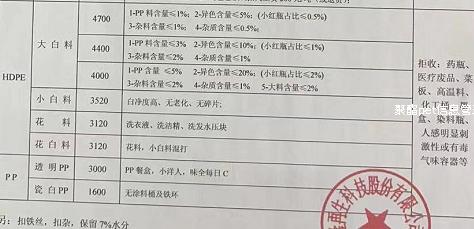 4700
1-PP料含量≤1%; 2-异色含量≤5%; (小红瓶占比≤0.5%)
3-杂料含量≤1%; 4-杂质含量≤0.5%;
大白料
4400
1-PP料含量≤3% 2-异色含量≤10%; (小红瓶占比≤1%)
3-杂料含量≤2% 4-杂质含量≤1%
HDPE
4000
1-PP含量 ≤5% 2-异色含量≤20%; (小红瓶占比≤2%)
3-杂料含量≤2% 4-杂质含量≤1% 5-大料含量≤2%
小白料 3520 白净度高、无老化、无碎片;
花料 3120 洗衣液、洗洁精、洗发水压块
花白料 3120 花料，小白料混打
PP
透明PP 3000 PP餐盒，小洋人，味全每日C
瓷白PP 1600 无涂料桶及铁环
拒收：药瓶、
医疗废品、菜
板、高温料、
化工桶
盒、染料瓶、
人感明显刺
激性或有毒
气味容器等
聚酯
再生科技股份有限公司
另：扣铁丝，扣杂，保留7%水分